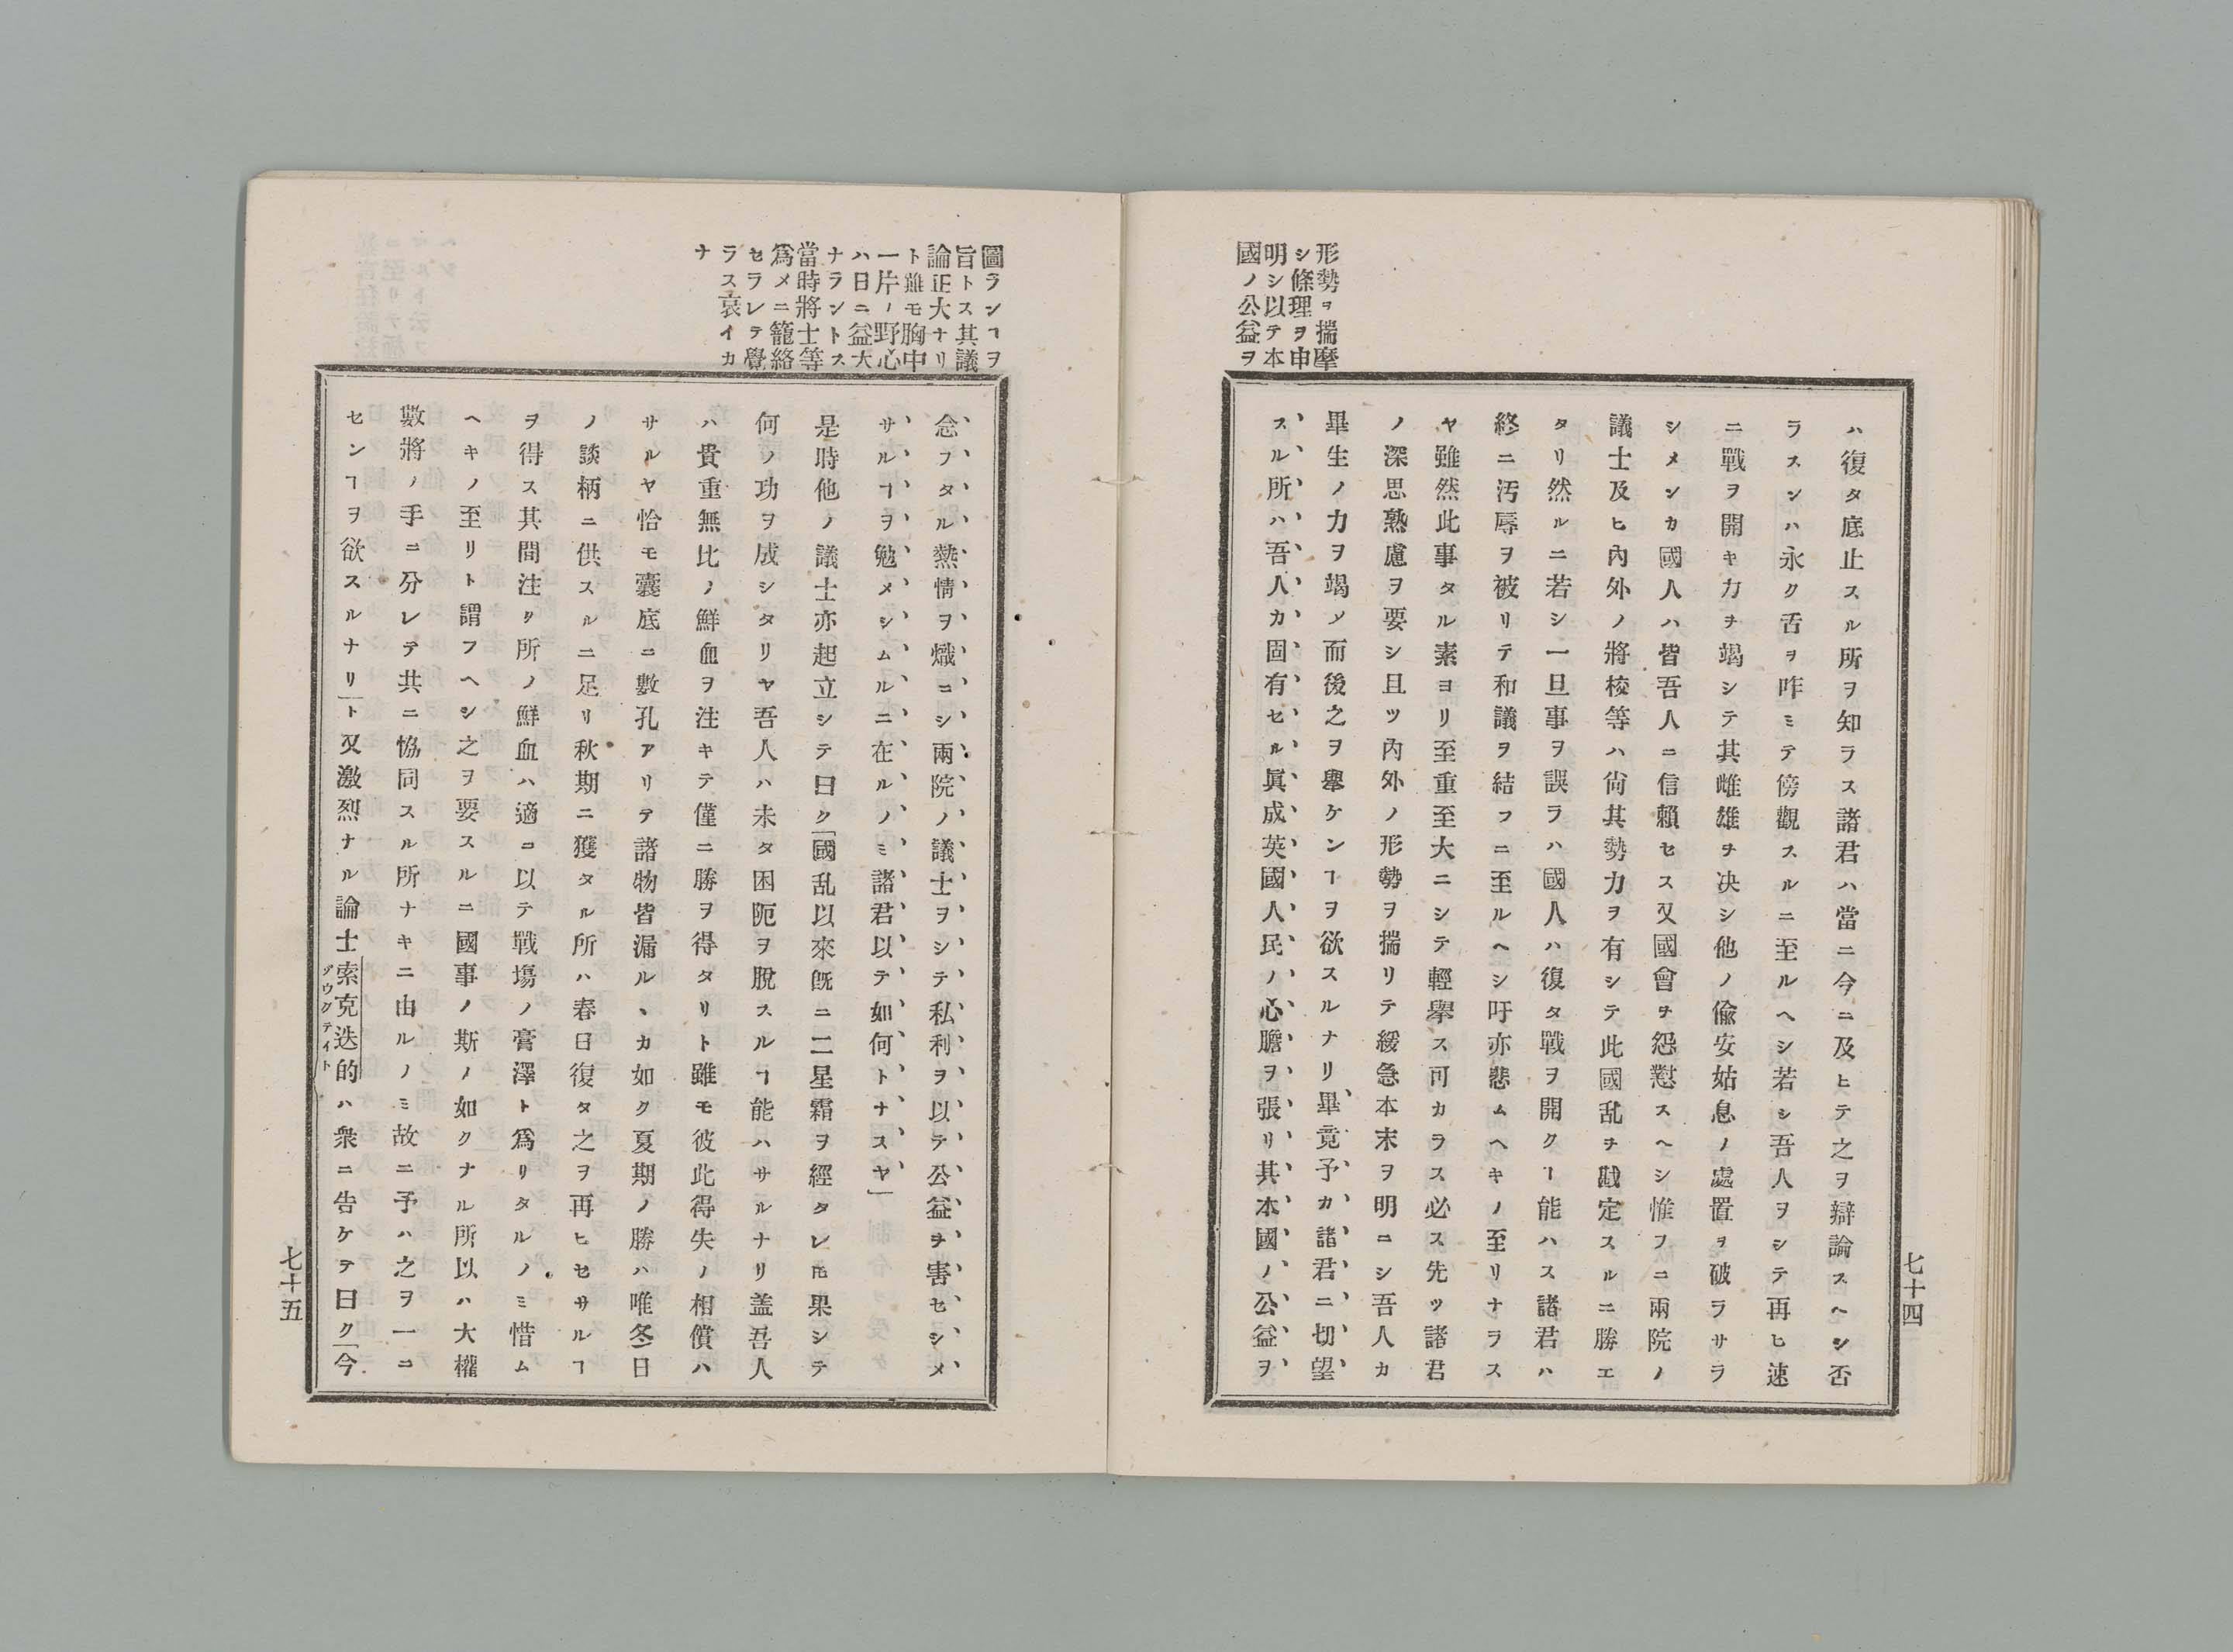 形勢ヲ揣摩
シ條理ヲ申
明シ以テ本
國ノ公益ヲ
ハ復タ底止スル所ヲ知ラス諸君ハ當ニ今ニ及ヒテ之ヲ辯論スヘシ否
ラスンハ永ク舌ヲ咋ミテ傍觀スルニ至ルヘシ若シ吾人ヲシテ再ヒ速
ニ戰ヲ開キ力ヲ竭シテ其雌雄ヲ决シ他ノ偸安姑息ノ處置ヲ破ラサラ
シメンカ國人ハ皆吾人ニ信賴セス又國會ヲ怨懟スヘシ惟フニ兩院ノ
議士及ヒ內外ノ將校等ハ尙其勢力ヲ有シテ此國乱ヲ戡定スルニ勝エ
タリ然ルニ若シ一旦事ヲ誤ラハ國人ハ復タ戰ヲ開クヿ能ハス諸君ハ
終ニ汚辱ヲ被リテ和議ヲ結フニ至ルヘシ吁亦悲ムヘキノ至リナラス
ヤ雖然此事タル素ヨリ至重至大ニシテ輕擧ス可カラス必ス先ツ諸君
ノ深思熟慮ヲ要シ且ツ內外ノ形勢ヲ揣リテ緩急本末ヲ明ニシ吾人カ
畢生ノ力ヲ竭メ而後之ヲ擧ケンヿヲ欲スルナリ畢竟予カ諸君ニ切望
スル所ハ吾人カ固有セル眞成英國人民ノ心膽ヲ張リ其本國ノ公益ヲ
七十四
圖ランヿヲ
旨トス其議
論正大ナリ
ト雖モ胸中
一片ノ野心
ハ日ニ益大
ナラントス
當時將士等
爲メニ籠絡
セラレテ覺
ラス哀イカ
ナ
念フタル熱情ヲ熾ニシ兩院ノ議士ヲシテ私利ヲ以テ公益ヲ害セシメ
サルヿヲ勉メシムルニ在ルノミ諸君以テ如何トナスヤ」
是時他ノ議士亦起立シテ曰ク「國乱以來既ニ二星霜ヲ經タレ𪜈果シテ
何ノ功ヲ成シタリヤ吾人ハ未タ困阨ヲ脫スルヿ能ハサルナリ盖吾人
ハ貴重無比ノ鮮血ヲ注キテ僅ニ勝ヲ得タリト雖モ彼此得失ノ相償ハ
サルヤ恰モ囊底ニ數孔アリテ諸物皆漏ルヽカ如ク夏期ノ勝ハ唯冬日
ノ談柄ニ供スルニ足リ秋期ニ獲タル所ハ春日復タ之ヲ再ヒセサルヿ
ヲ得ス其間注ク所ノ鮮血ハ適コ以テ戰塲ノ膏澤ト爲リタルノミ惜ム
ヘキノ至リト謂フヘシ之ヲ要スルニ國事ノ斯ノ如クナル所以ハ大權
數將ノ手ニ分レテ共ニ恊同スル所ナキニ由ルノミ故ニ予ハ之ヲ一ニ
センヿヲ欲スルナリ」ト又激烈ナル論士索克迭的ハ衆ニ告ケテ曰ク「今
ヅウクテイト
七十五